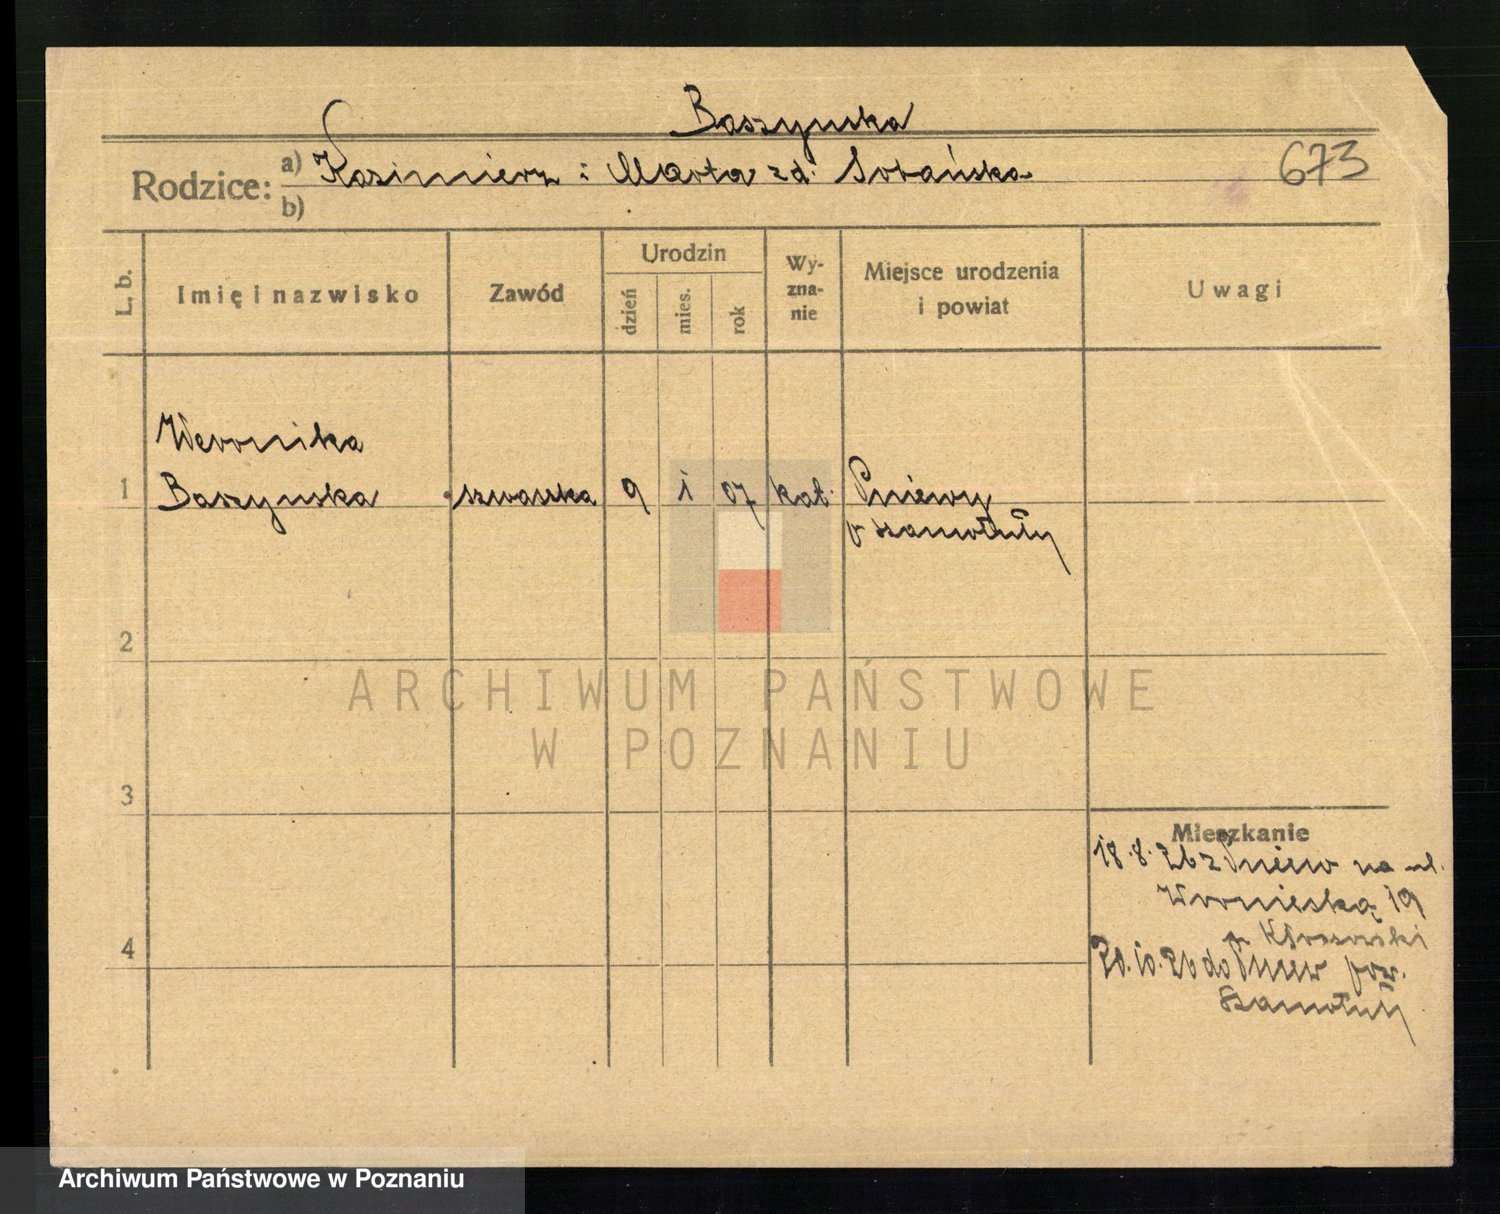 Baszyńska
Rodzice: a) Kazimierz i Marta zd. Sobańska
673
b)
L. b.
Imię i nazwisko
Zawód
Urodzin
dzień
mies.
rok
Wy-
zna-
nie
Miejsce urodzenia
i powiat
Uwagi
Weronika
1 Baszynska szwaczka 9 i 07 kat. Pniewy
p szamotuły
2
ARCHIWUM PAŃSTWOWE
W POZNANIU
3
Mieszkanie
18.8.26 z Pniew na ul.
Wroniecką 19
4
20.10.26 do Pniew pow.
Szamotuły
Archiwum Państwowe w Poznaniu